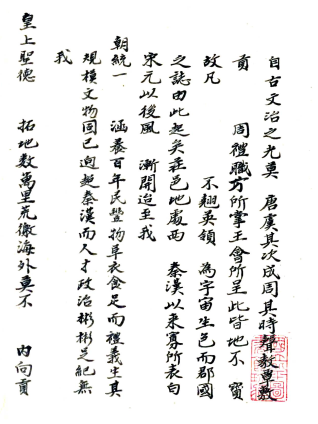 自古文治之光莫 唐虞其次成周其時聲教專敷
貢 周禮職方所掌王會所呈此皆地不 寶
故凡 不翹英領 為宇宙生色而郡國
之誌由此起矣 邑地處西 秦漢以來寡所表白
宋元以後風 漸開迨至我
朝統一 涵養百年民豐物阜衣食足而禮義生其
規模文物固已迥越秦漢而人才政治彬彬足紀無
我
皇上聖德 拓地數萬里荒徼海外莫不 內向貢